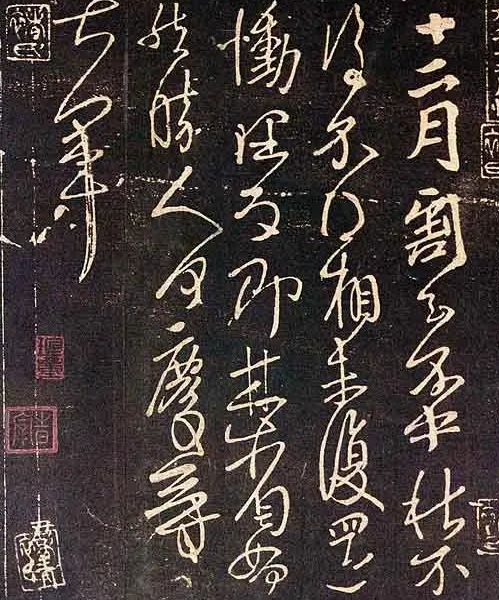 十二月割至不中秋不
復不得相未復還
慟理為即甚省如
何然勝人何慶等
大軍